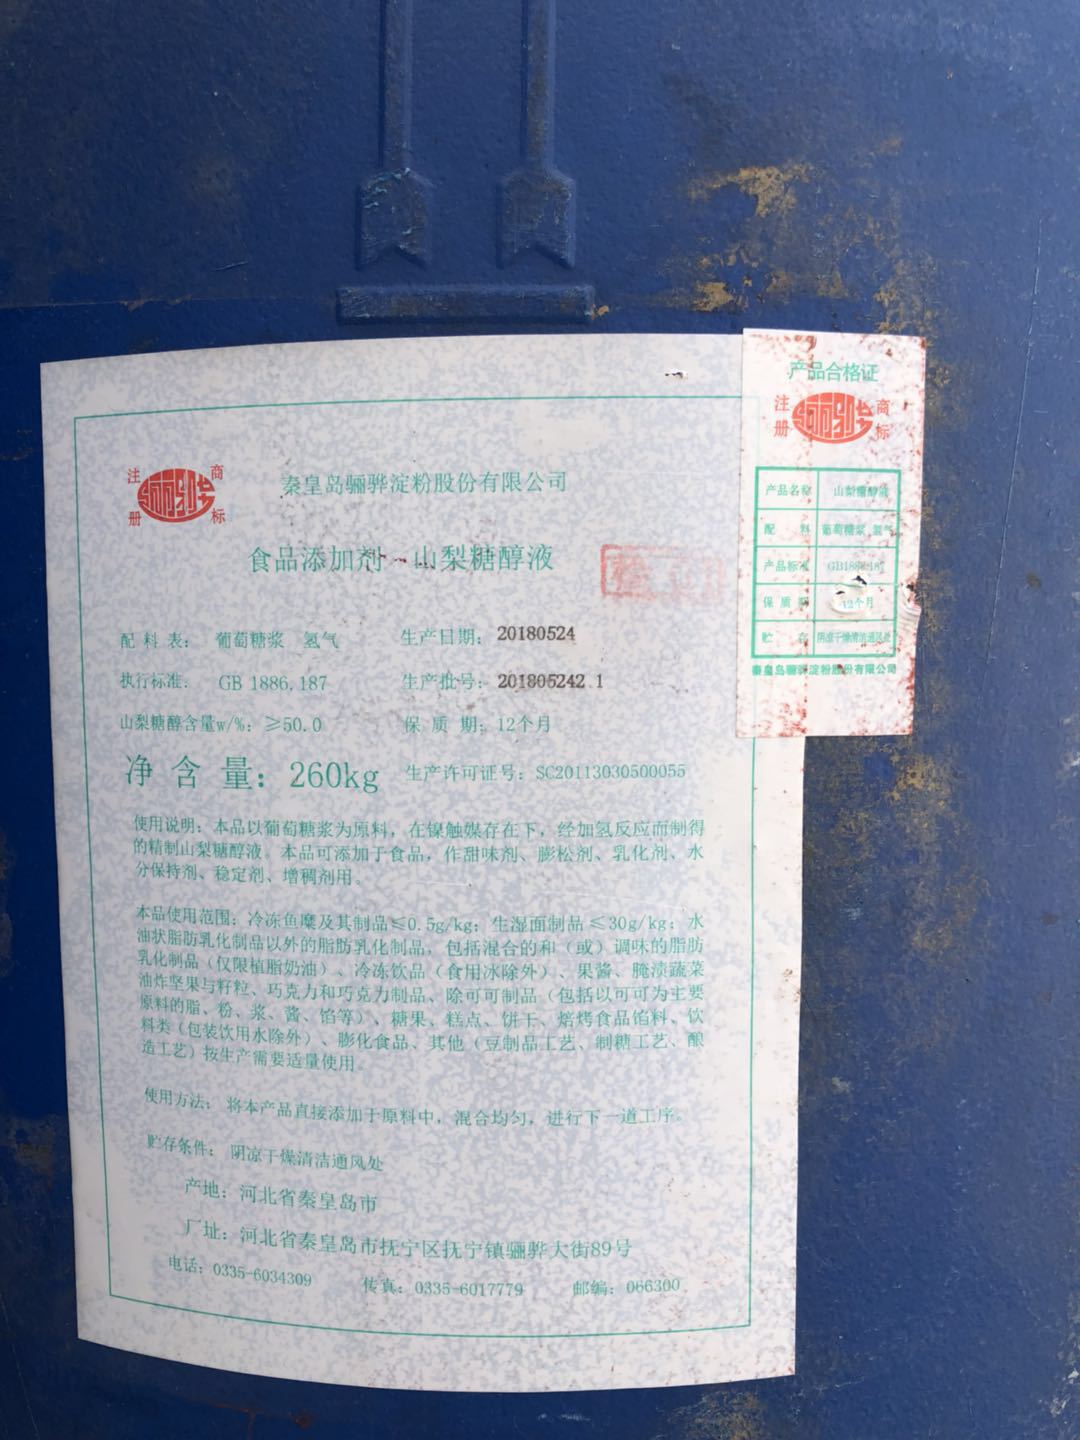 注 商
册 标
秦皇岛骊骅淀粉股份有限公司
食品添加剂-山梨糖醇液
配料表： 葡萄糖浆 氢气
生产日期：20180524
执行标准： GB 1886.187
生产批号：201805242 1
山梨糖醇含量w/%：≥50.0
保 质 期：12个月
净 含 量：260kg
生产许可证号：SC20113030500055
使用说明：本品以葡萄糖浆为原料，在镍触媒存在下，经加氢反应而制得
的精制山梨糖醇液。本品可添加于食品，作甜味剂、膨松剂、乳化剂、水
分保持剂、稳定剂、增稠剂用。
本品使用范围：冷冻鱼糜及其制品≤0.5g/kg；生湿面制品≤30g/kg；水
油状脂肪乳化制品以外的脂肪乳化制品，包括混合的和（或）调味的脂肪
乳化制品（仅限植脂奶油）、冷冻饮品（食用冰除外）、果酱、腌渍蔬菜
油炸坚果与籽粒、巧克力和巧克力制品、除可可制品（包括以可可为主要
原料的脂、粉、浆、酱、馅等）、糖果、糕点、饼干、焙烤食品馅料、饮
料类（包装饮用水除外）、膨化食品、其他（豆制品工艺、制糖工艺、酿
造工艺）按生产需要适量使用。
使用方法： 将本产品直接添加于原料中，混合均匀，进行下一道工序。
贮存条件： 阴凉干燥清洁通风处
产地：河北省秦皇岛市
厂址：河北省秦皇岛市抚宁区抚宁镇骊骅大街89号
电话：0335-6034309 传真：0335-6017779 邮编：066300
产品合格证
注 商
册 标
产品名称 山梨糖醇液
配 料 葡萄糖浆 氢气
产品标准 GB1886.187
保 质 期 12个月
贮 存 阴凉干燥清洁通风处
秦皇岛骊骅淀粉股份有限公司